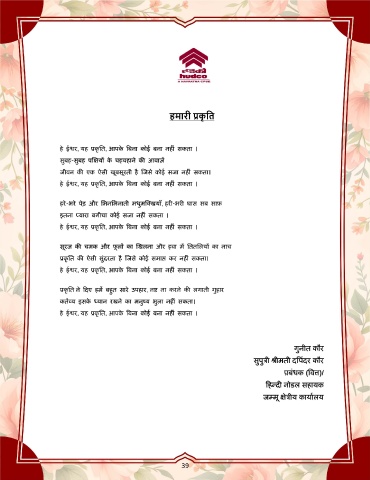 हडको
hudco
हमारी प्रकृति
हे ईश्वर, यह प्रकृति, आपके बिना कोई बना नहीं सकता ।
सुबह-सुबह पक्षियों के चहचहाने की आवाज़ें
जीवन की एक ऐसी खूबसूरती है जिसे कोई सजा नहीं सकता।
हे ईश्वर, यह प्रकृति, आपके बिना कोई बना नहीं सकता ।
हरे-भरे पेड़ और भिनभिनाती मधुमक्खियाँ, हरी-भरी घास सब साफ
इतना प्यारा बगीचा कोई सजा नहीं सकता ।
हे ईश्वर, यह प्रकृति, आपके बिना कोई बना नहीं सकता ।
सूरज की चमक और फूलों का खिलना और हवा में तितलियों का नाच
प्रकृति की ऐसी सुंदरता है जिसे कोई समाप्त कर नहीं सकता।
हे ईश्वर, यह प्रकृति, आपके बिना कोई बना नहीं सकता ।
प्रकृति ने दिए हमें बहुत सारे उपहार, नष्ट ना करने की लगाती गुहार
कर्तव्य इसके ध्यान रखने का मनुष्य भुला नहीं सकता।
हे ईश्वर, यह प्रकृति, आपके बिना कोई बना नहीं सकता ।
गुनीत कौर
सुपुत्री श्रीमती दपिंदर कौर
प्रबंधक (वित्त)/
हिन्दी नोडल सहायक
जम्मू क्षेत्रीय कार्यालय
39